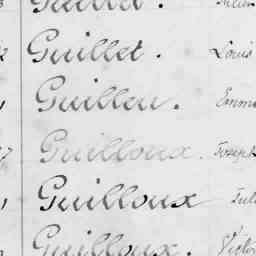 Guillet.
Guillet. Louis
Guilleu.
Guilloux. Joseph
Guilloux
Guilloux.